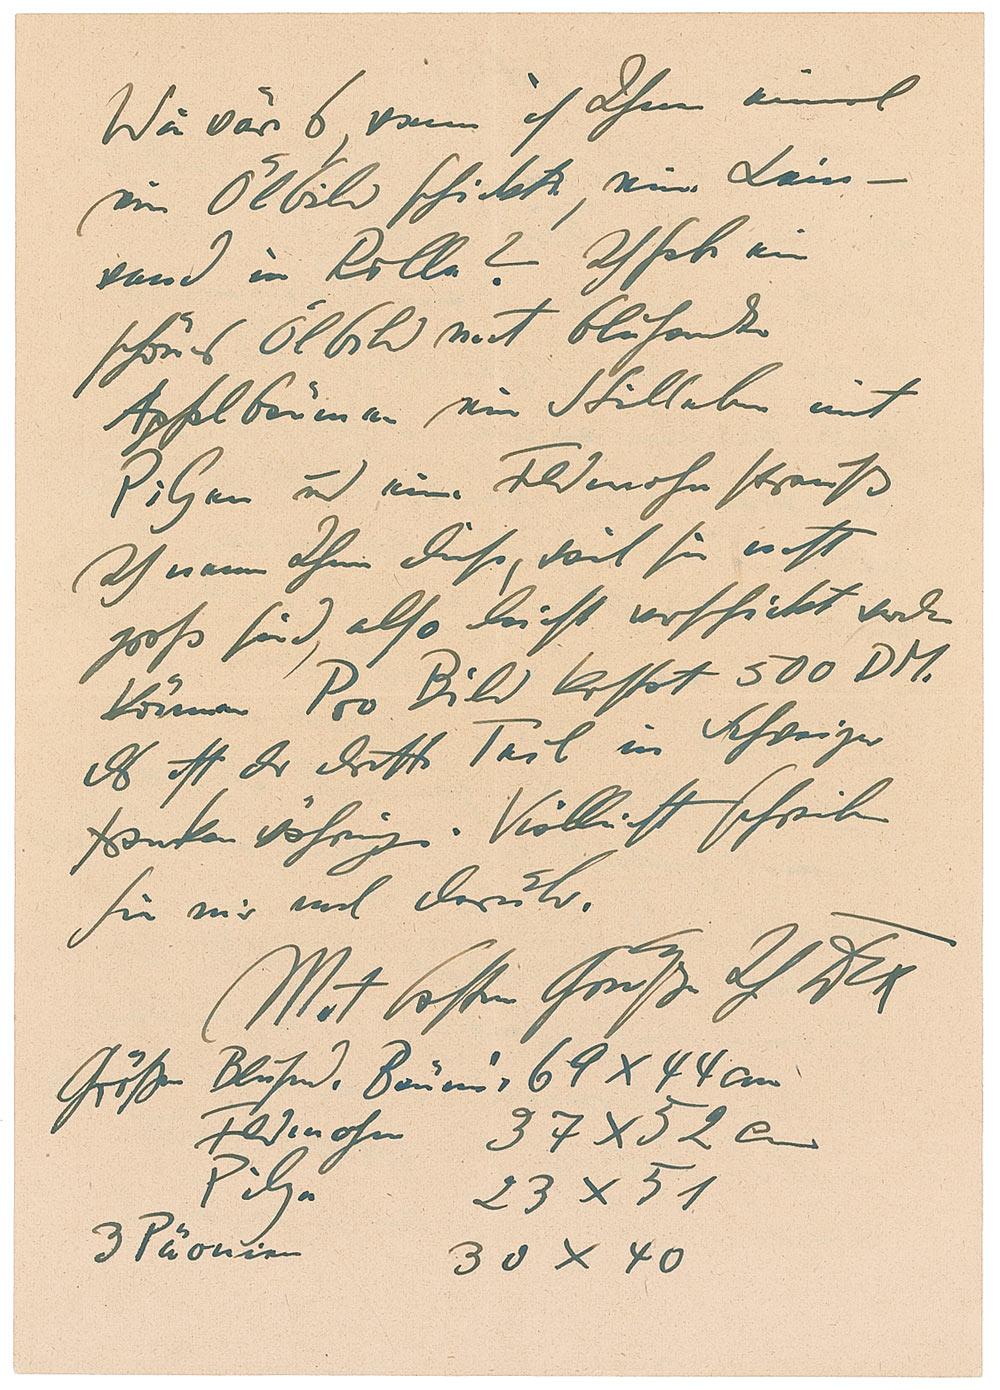 Wie wär's, wenn ich Ihnen einmal
ein Ölbild schickte, eine Lein-
wand in Rolle? Ich hab ein
schönes Ölbild mit blühenden
Apfelbäumen ein Stillleben mit
Pilzen und einen Feldmohnstrauß
Ich nenne Ihnen diese, weil sie nicht
groß sind, also leicht verschickt werden
können Pro Bild kostet 500 DM.
Es ist der dritte Teil in Schweizer
Franken Währung. Vielleicht schreiben
Sie mir mal darüber.
Mit besten Grüßen Ihr
Größen Blühend. Bäume 69 x 44 cm
Feldmohn 37 x 52 cm
Pilze 23 x 51
3 Päonien 30 x 40